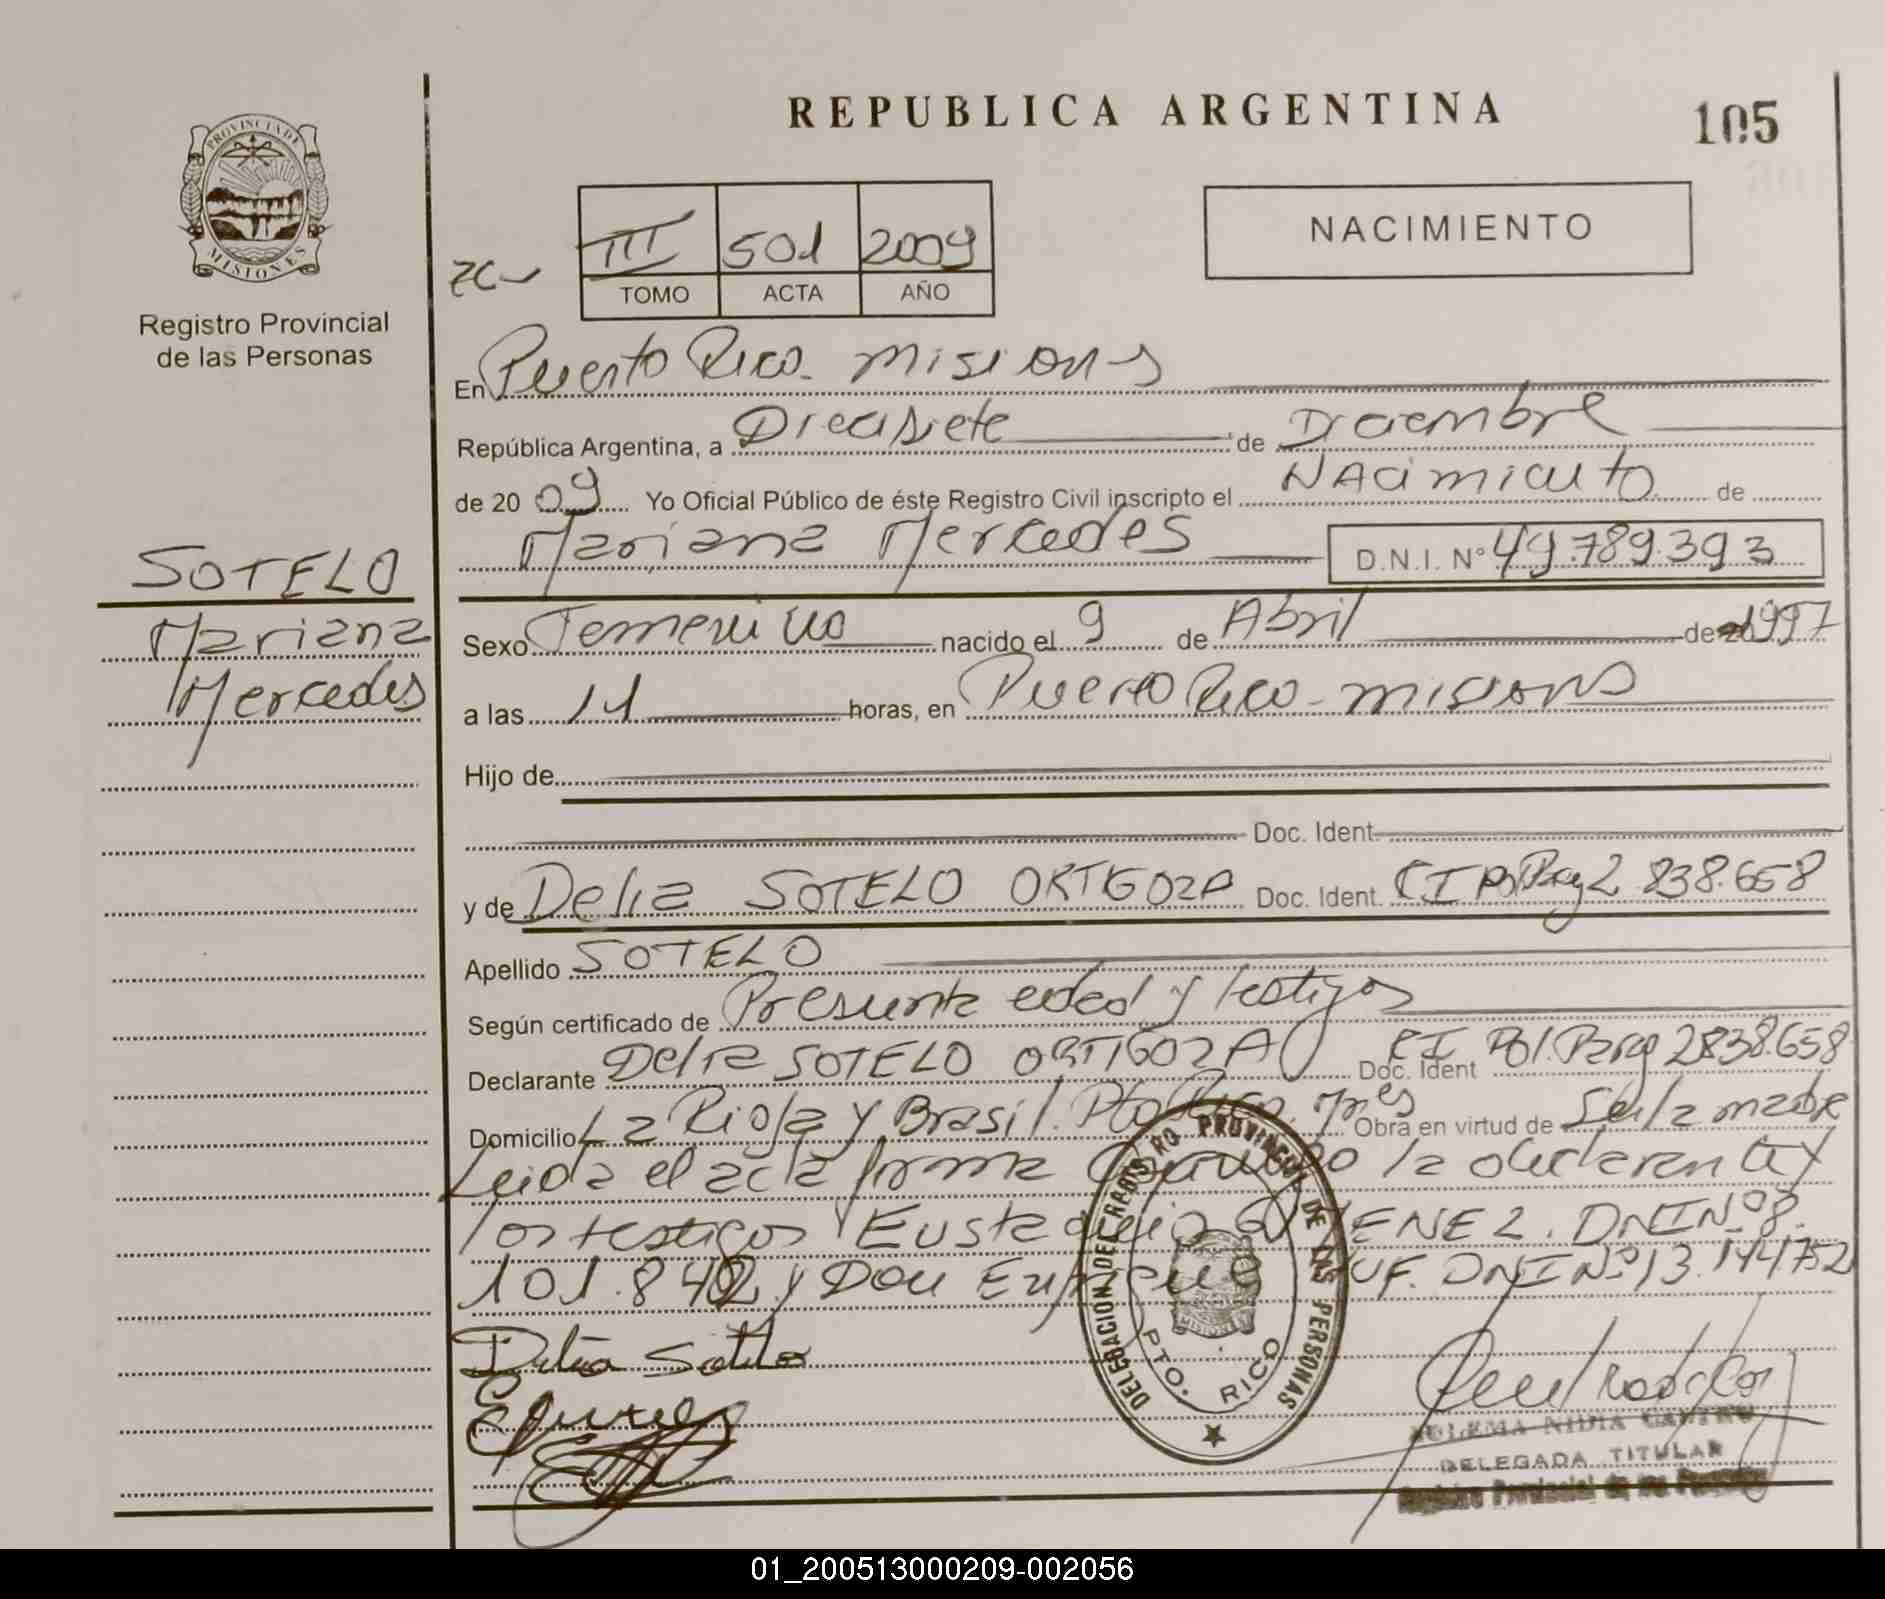 REPUBLICA ARGENTINA
105
PROVINCIA DE MISIONES
Registro Provincial
de las Personas
III 501 2009
TOMO ACTA AÑO
NACIMIENTO
En Puerto Rico - Misiones
República Argentina, a Diecisiete de Diciembre
de 20 09 Yo Oficial Público de éste Registro Civil inscripto el Nacimiento de
Mariana Mercedes D.N.I. Nº 49.789.393
SOTELO
Mariana
Mercedes
Sexo Femenino nacido el 9 de Abril de 1997
a las 11 horas, en Puerto Rico - Misiones
Hijo de
Doc. Ident.
y de Delia SOTELO ORTIGOZA Doc. Ident. CI Pol Parg 2.838.658
Apellido SOTELO
Según certificado de Presunta edad y testigos
Declarante Delia SOTELO ORTIGOZA Doc. Ident CI Pol. Parag 2838.658
Domicilio La Rioja y Brasil. Pto Rico. Mnes Obra en virtud de Ser la madre
Leida el acta firma conmigo la declarante y
los testigos Eustaquio DNI Nº 8.
101.842 y Don DNI Nº 13.144.752
Delia Sotelo
DELEGACION DEL REGISTRO PROVINCIAL DE LAS PERSONAS
PTO. RICO
MISIONES
ZULEMA NIDIA CASTRO
DELEGADA TITULAR
Registro Provincial de las Personas
01_200513000209-002056